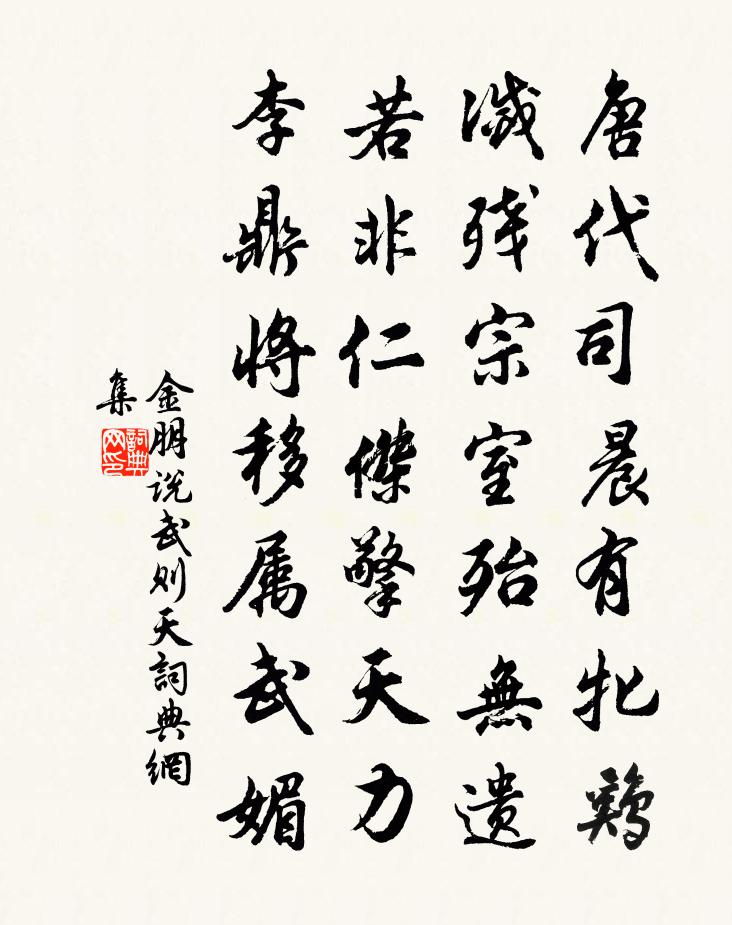 唐代司晨有牝鷄
滅残宗室殆無遺
若非仁傑擎天力
李鼎将移属武媚
金朋说武则天詞典網
集
詞典网印